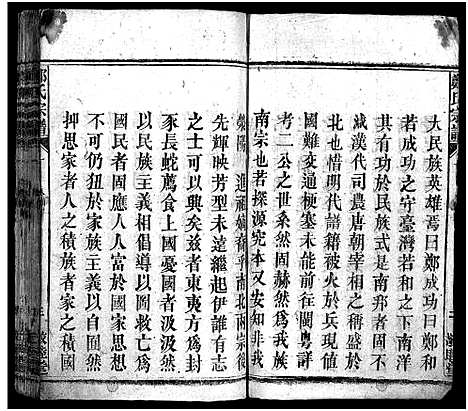 大民族英雄焉曰鄭成功曰鄭和
若成功之守臺灣若和之下南洋
其有功於民族式是南邦者固不
減漢代司農唐朝宰相之稱盛於
北也惜明代譜籍被火於兵現值
國難交通梗塞未能前往閩粵詳
考二公之世系然固赫然為我族
南宗也若探源究本又安知非我
滎陽
先輝映芳型未遠繼起伊誰有志
之士可以興矣茲者東夷方為封
豕長蛇薦食上國憂國者汲汲然
以民族主義相倡導以圖救亡為
國民者固應人人富於國家思想
不可仍狃於家族主義以自小也
抑思家者人之積族者家之積國
鄭氏宗譜